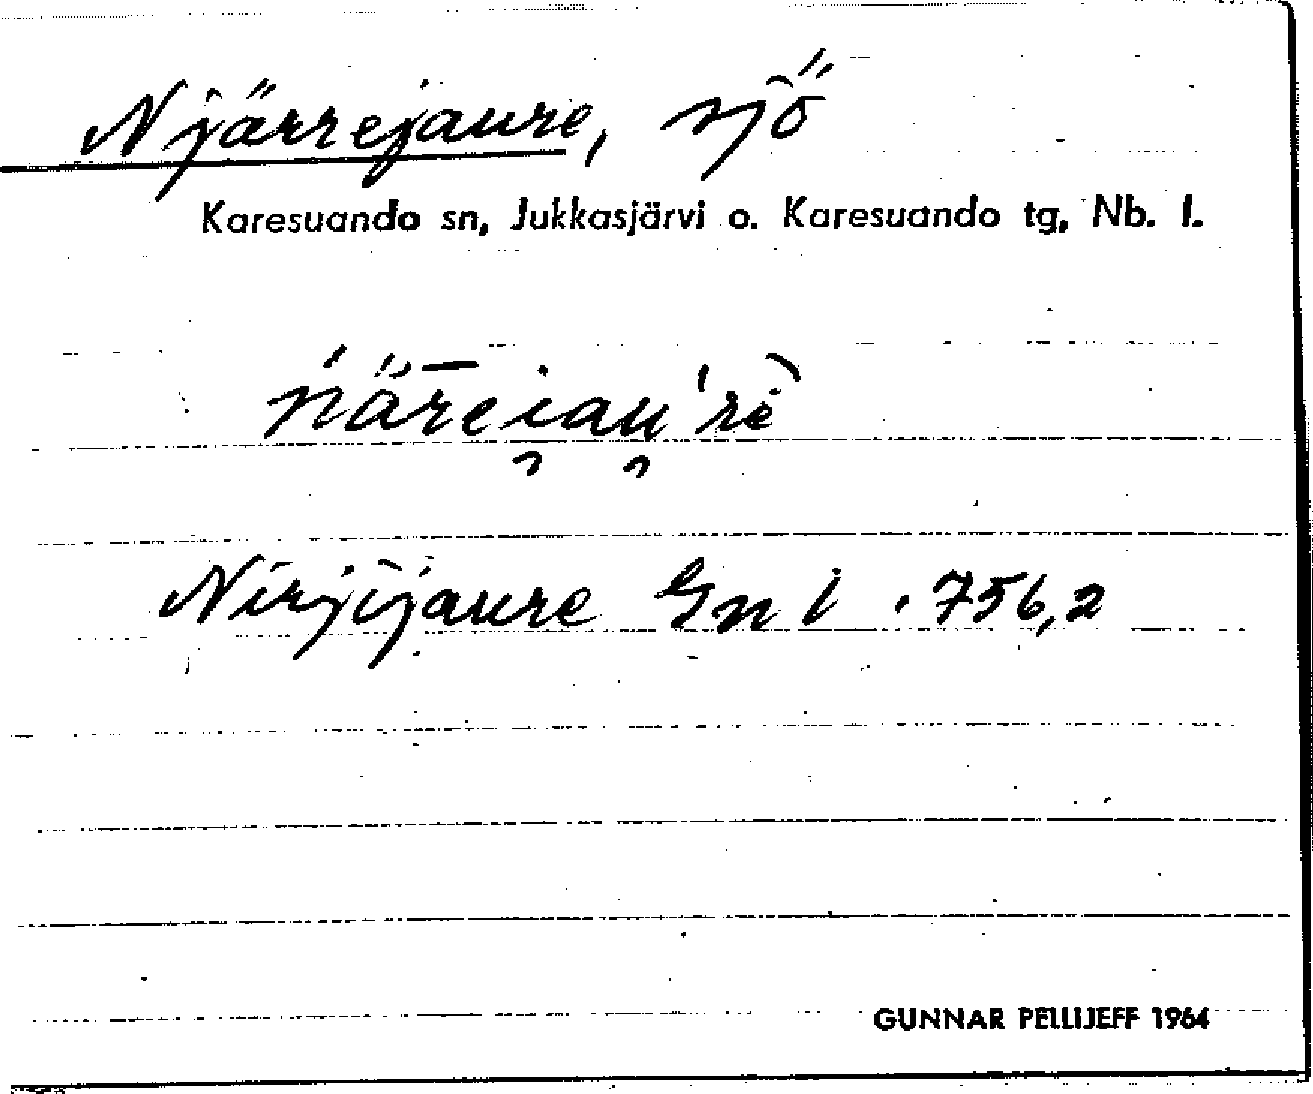 Njärrejaure, sjö
Karesuando sn, Jukkasjärvi o. Karesuando tg, Nb. l.
Nirjijaure Gnl. 756,2
GUNNAR PELLIJEFF 1964